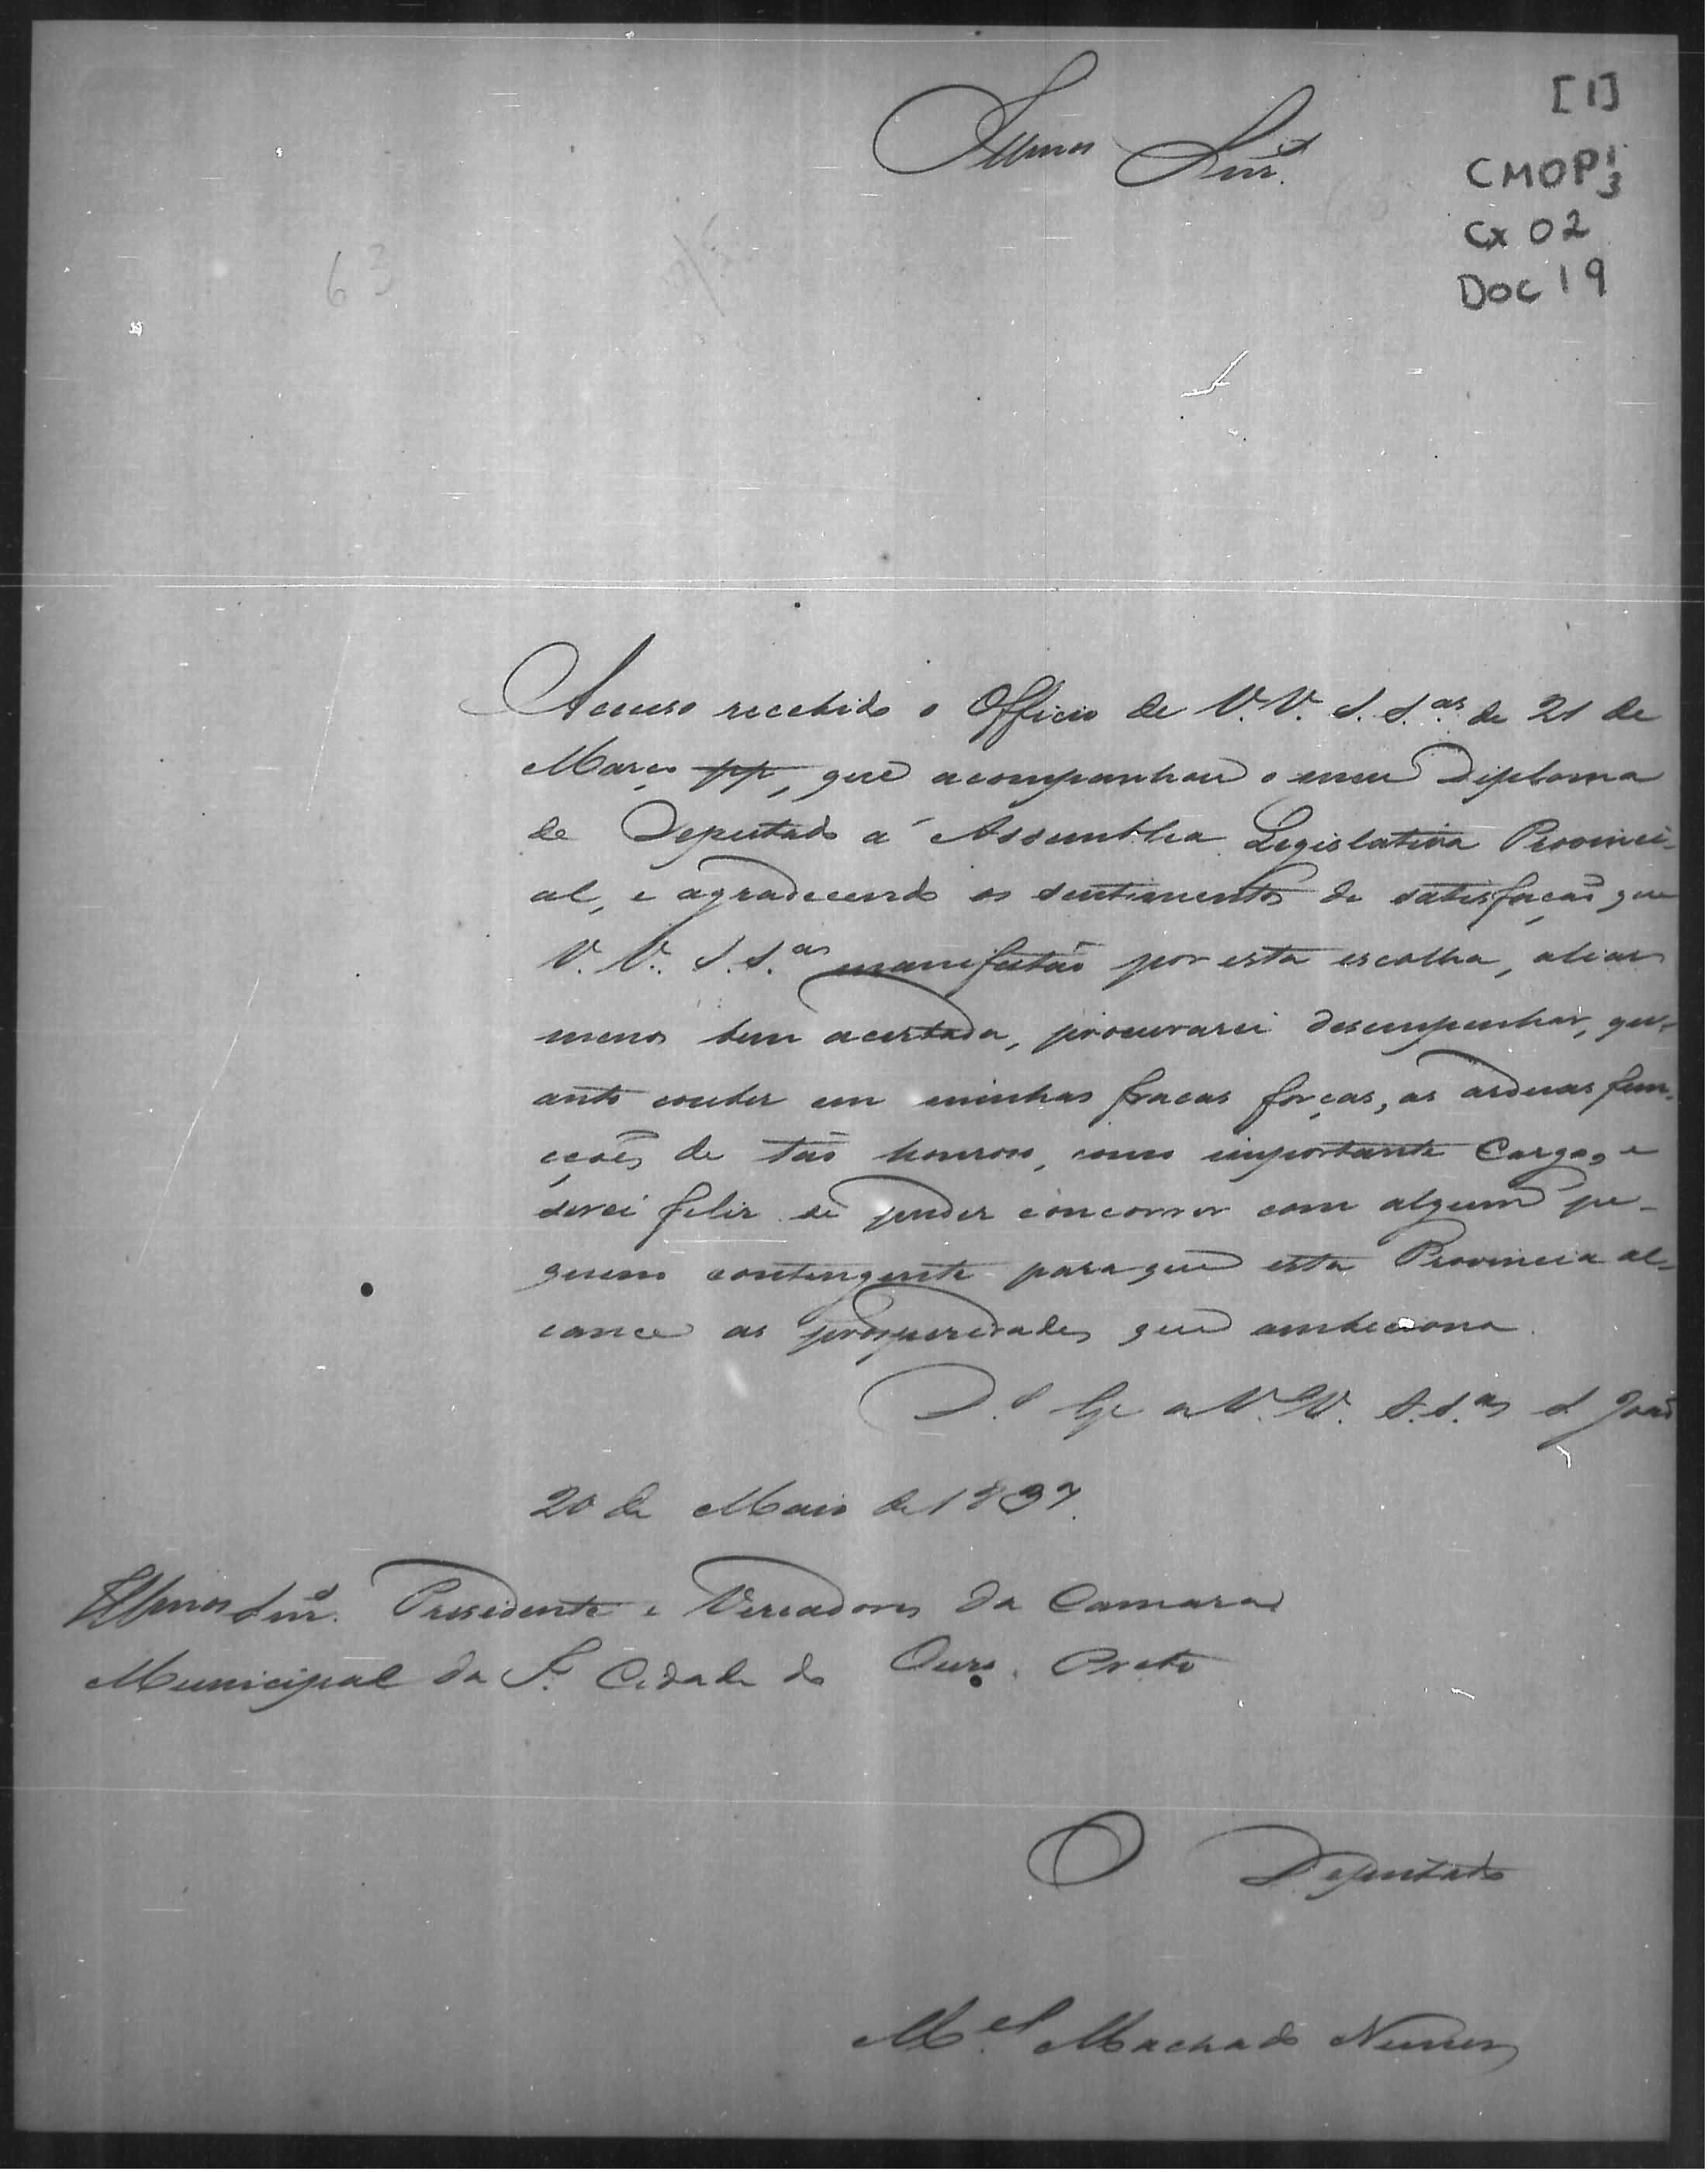 [1]
Illmos Snrs.
CMOP 1/3
Cx 02
Doc 19
63
Accuso recebido o Officio de V.V. S.S.as de 21 de
Março pp, que acompanhou o meu Diploma
de Deputado á Assemblea Legislativa Provinci-
al, e agradecendo os sentimentos de satisfação que
V.V. S.S.as manifestão por esta escolha, alias
menos bem acertada, procurarei desempenhar, qu-
anto couber em minhas fracas forças, as arduas fun-
cções de tão honroso, como importante Cargo, e
serei feliz se puder concorrer com algum pe-
queno contingente para que esta Provincia al-
cance as prosperidades que ambiciona.
D.s G.e a V.V. S.S.as S. João
20 de Maio de 1837.
Illmos Snrs. Presidente e Vereadores da Camara
Municipal da I. Cidade do Ouro Preto
O Deputado
M.el Machado Nunes